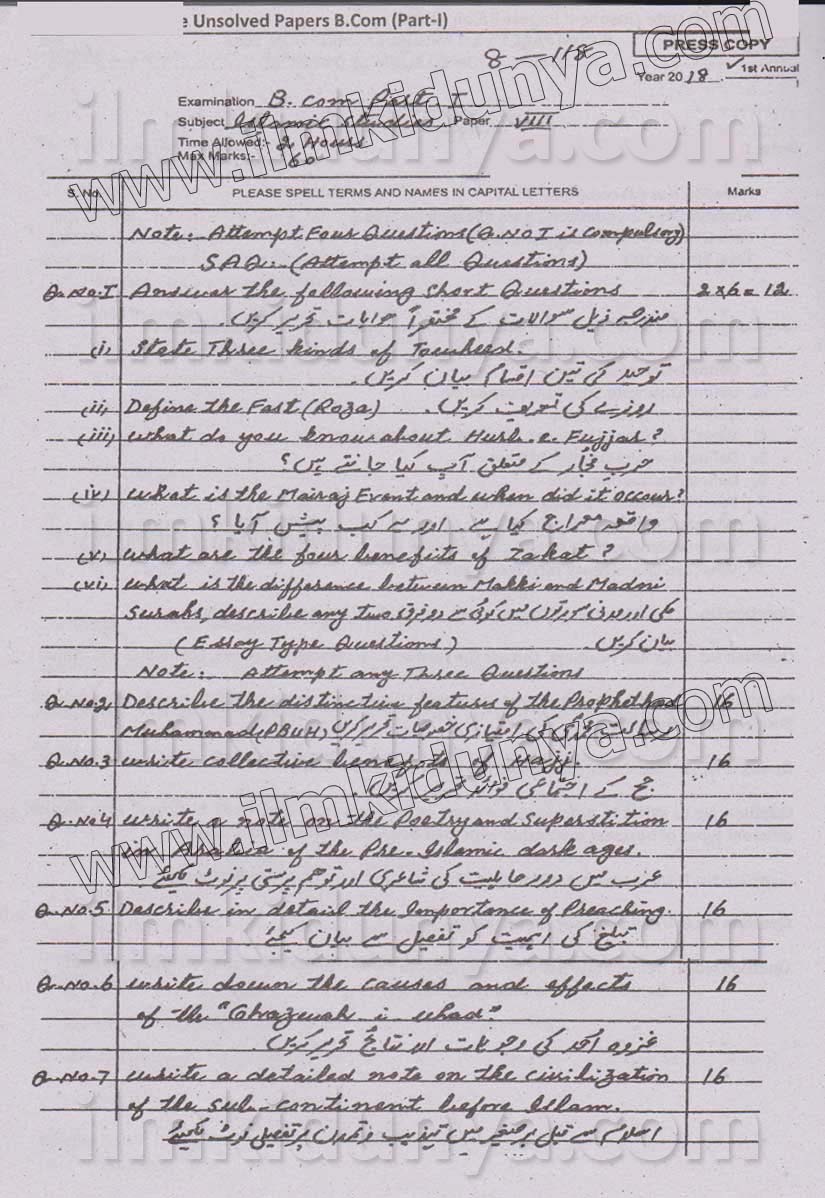 e Unsolved Papers B.Com (Part-I)
8 — 118
PRESS COPY
Year 2018 ✓ 1st Annual
Examination B. Com Part I
Subject Islamic Studies Paper VIII
Time Allowed:- 2 Hours
Max Marks:- 60
S. No. PLEASE SPELL TERMS AND NAMES IN CAPITAL LETTERS Marks
Note: Attempt Four Questions (Q. No I is Compulsory)
S A Q. (Attempt all Questions)
Q. No. I Answer the following Short Questions 2×6 = 12
مندرجہ ذیل سوالات کے مختصراً جوابات تحریر کریں۔
(i) State Three kinds of Tauheed.
توحید کی تین اقسام بیان کریں۔
(ii) Define the Fast (Roza) روزے کی تعریف کریں۔
(iii) What do you know about Hurb-e-Fujjar?
حرب فجار کے متعلق آپ کیا جانتے ہیں؟
(iv) What is the Mairaj Event and when did it occur?
واقعہ معراج کیا ہے۔ اور یہ کب پیش آیا ؟
(v) What are the four benefits of Zakat?
(vi) What is the difference between Makki and Madni
Surahs, describe any two مکی اور مدنی سورتوں میں کوئی سے دو فرق
(Essay Type Questions) بیان کریں۔
Note: Attempt any Three Questions
Q. No. 2 Describe the distinctive features of the Prophethood 16
Muhammad (PBUH) رسالت محمدی کی امتیازی خصوصیات تحریر کریں
Q. No. 3 Write collective benefits of Hajj. 16
حج کے اجتماعی فوائد تحریر کریں۔
Q. No 4 Write a note on the Poetry and Superstition 16
in Arabia of the Pre-Islamic dark ages.
عرب میں دور جاہلیت کی شاعری اور توہم پرستی پر نوٹ لکھیئے
Q. No. 5 Describe in detail the Importance of Preaching. 16
تبلیغ کی اہمیت کو تفصیل سے بیان کیجئے
Q. No. 6 Write down the causes and effects 16
of the "Ghazewah i uhad"
غزوہ اُحد کی وجوہات اور نتائج تحریر کریں۔
Q. No. 7 Write a detailed note on the civilization 16
of the Sub-Continent before Islam.
اسلام سے قبل برصغیر میں تہذیب و تمدن پر تفصیلی نوٹ لکھیئے
www.ilmkidunya.com
www.ilmkidunya.com
ilmkidunya.com
ilmkidunya.com
ilmkidunya.com
ilmkidunya.com
ilmkidunya.com
ilmkidunya.com